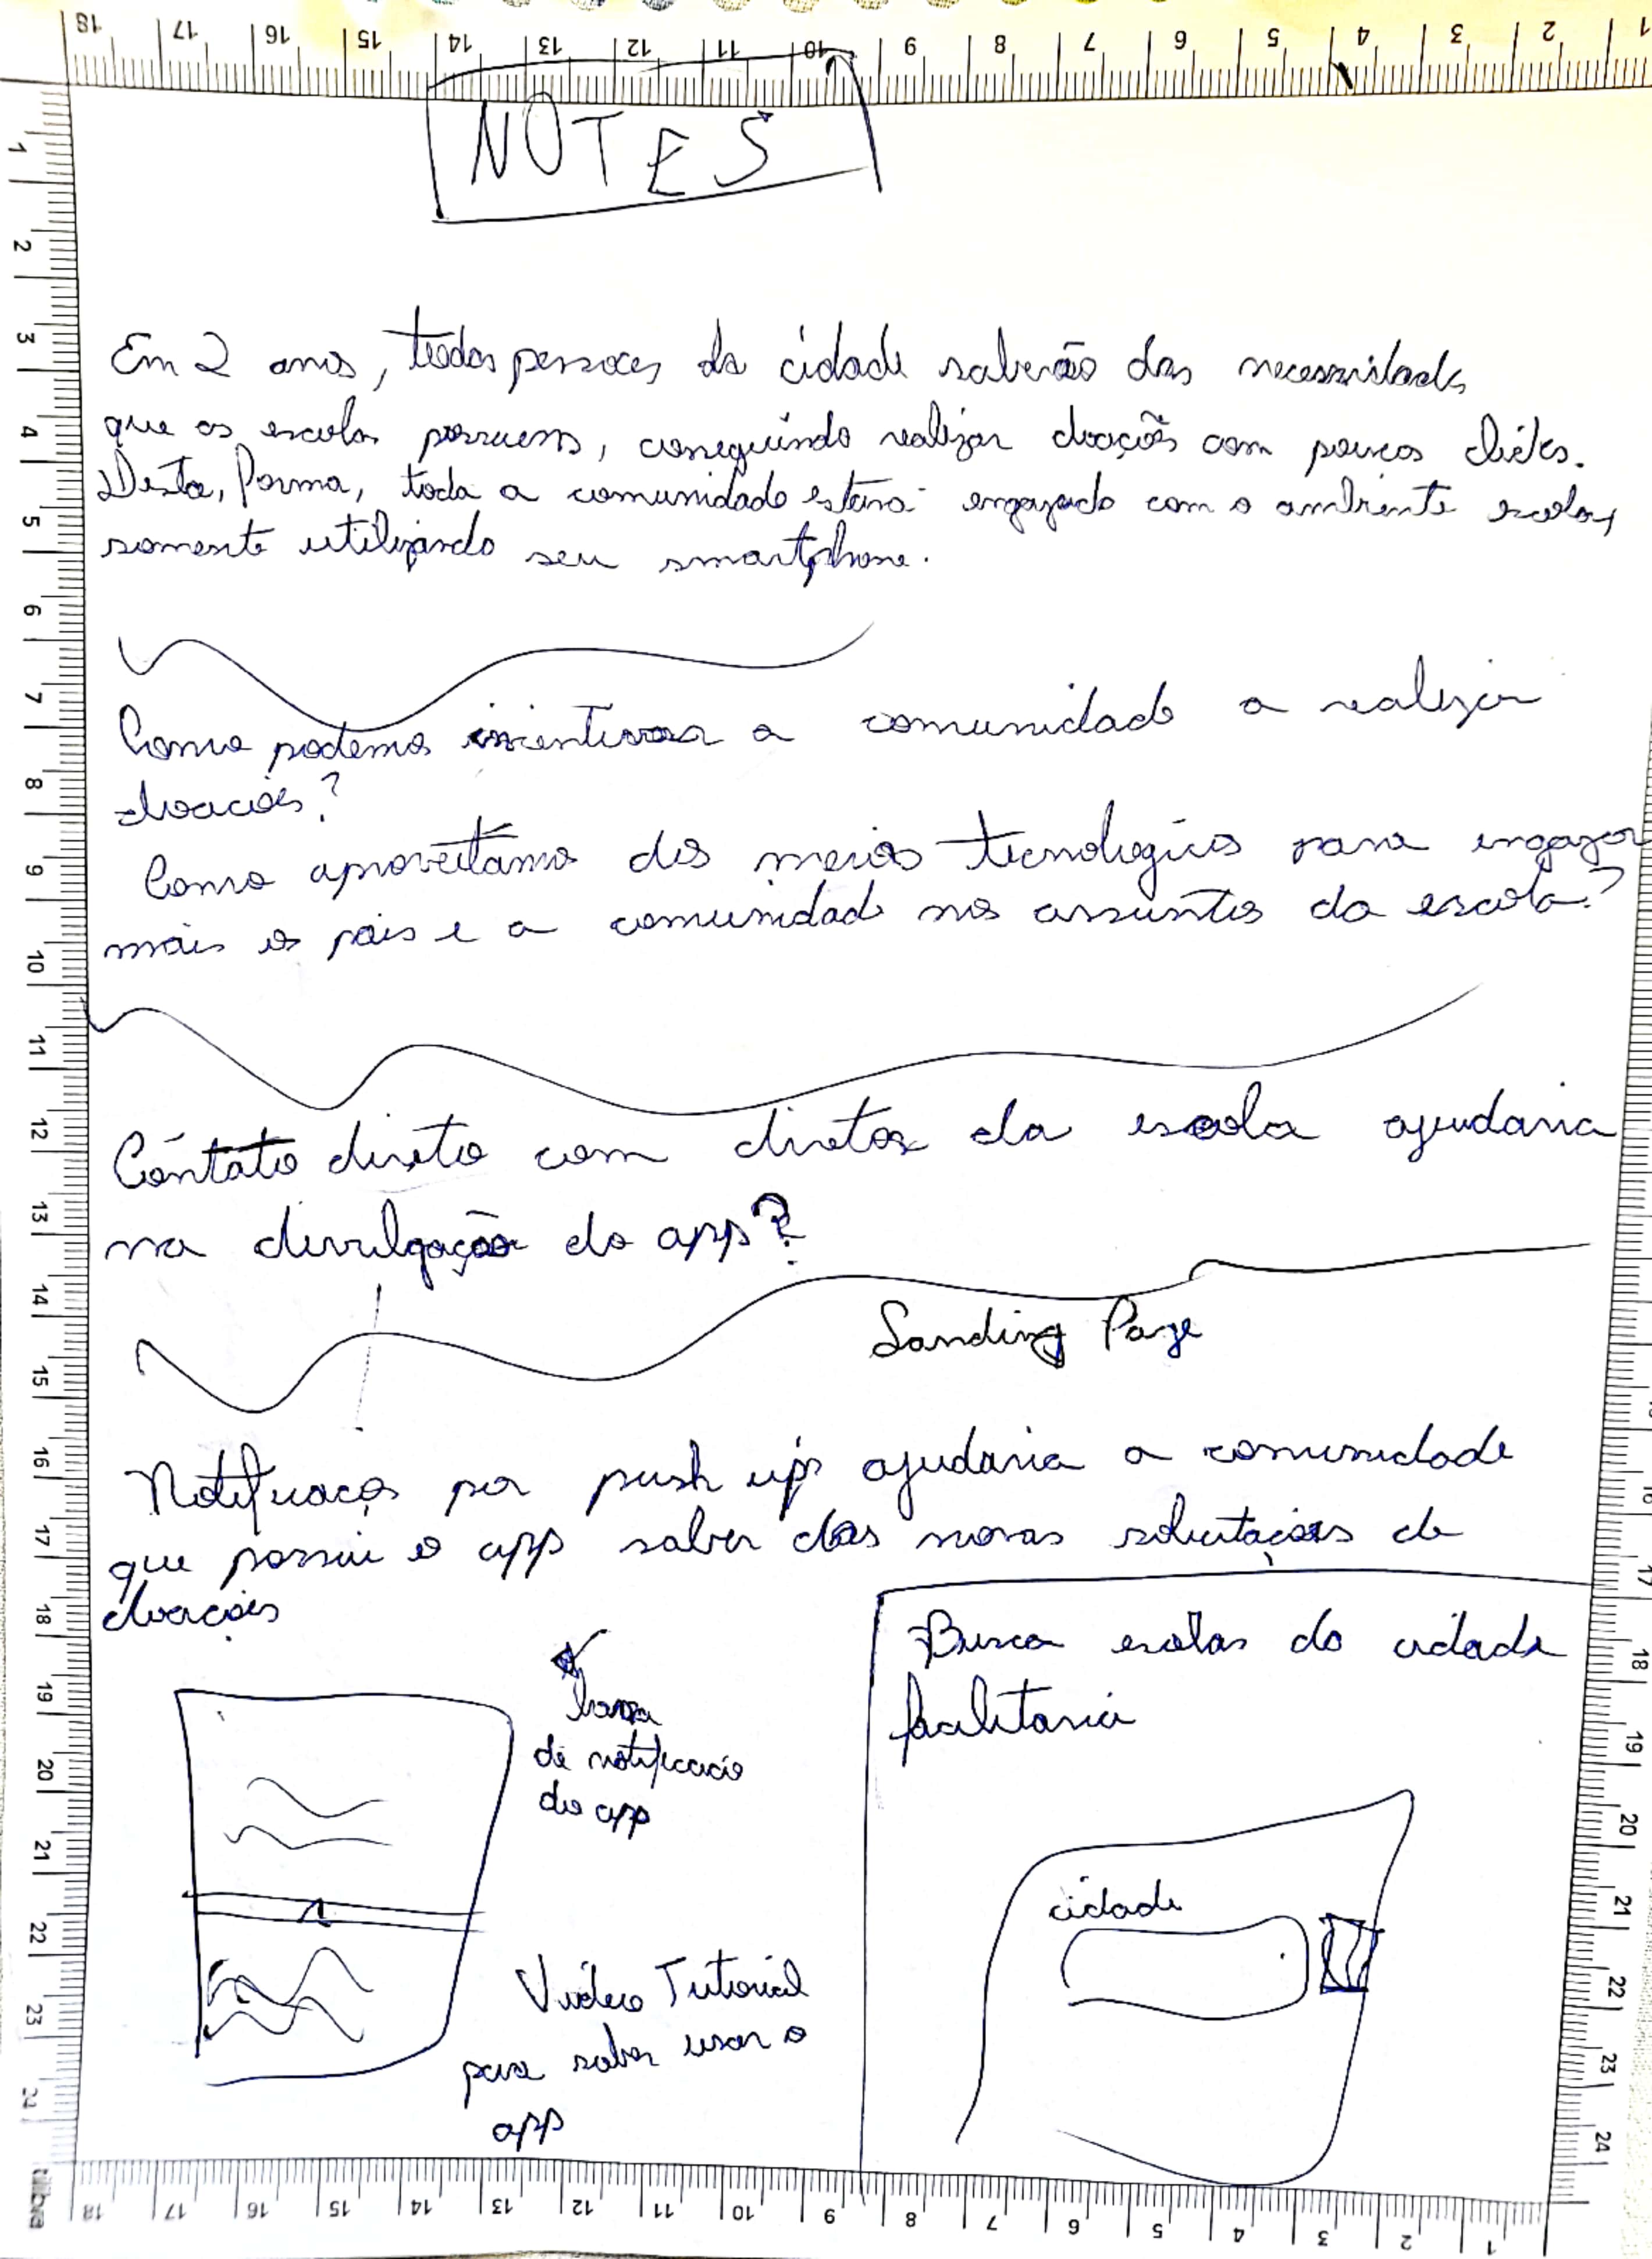 NOTES
Em 2 anos, todas pessoas da cidade saberão das necessidades
que as escolas possuem, conseguindo realizar doações com poucos clicks.
Desta, forma, toda a comunidade estará engajada com o ambiente escolar,
somente utilizando seu smartphone.
Como podemos incentivar a comunidade a realizar
doações?
Como aproveitamos dos meios tecnologicos para engajar
mais os pais e a comunidade nos assuntos da escola?
Contato direto com diretor da escola ajudaria
na divulgação do app?
Landing Page
Notificação por push up's ajudaria a comunidade
que possui o app saber das novas solicitações de
doações
barra
de notificação
do app
Video Tutorial
para saber usar o
app
Busca escolas da cidade
facilitaria
cidade